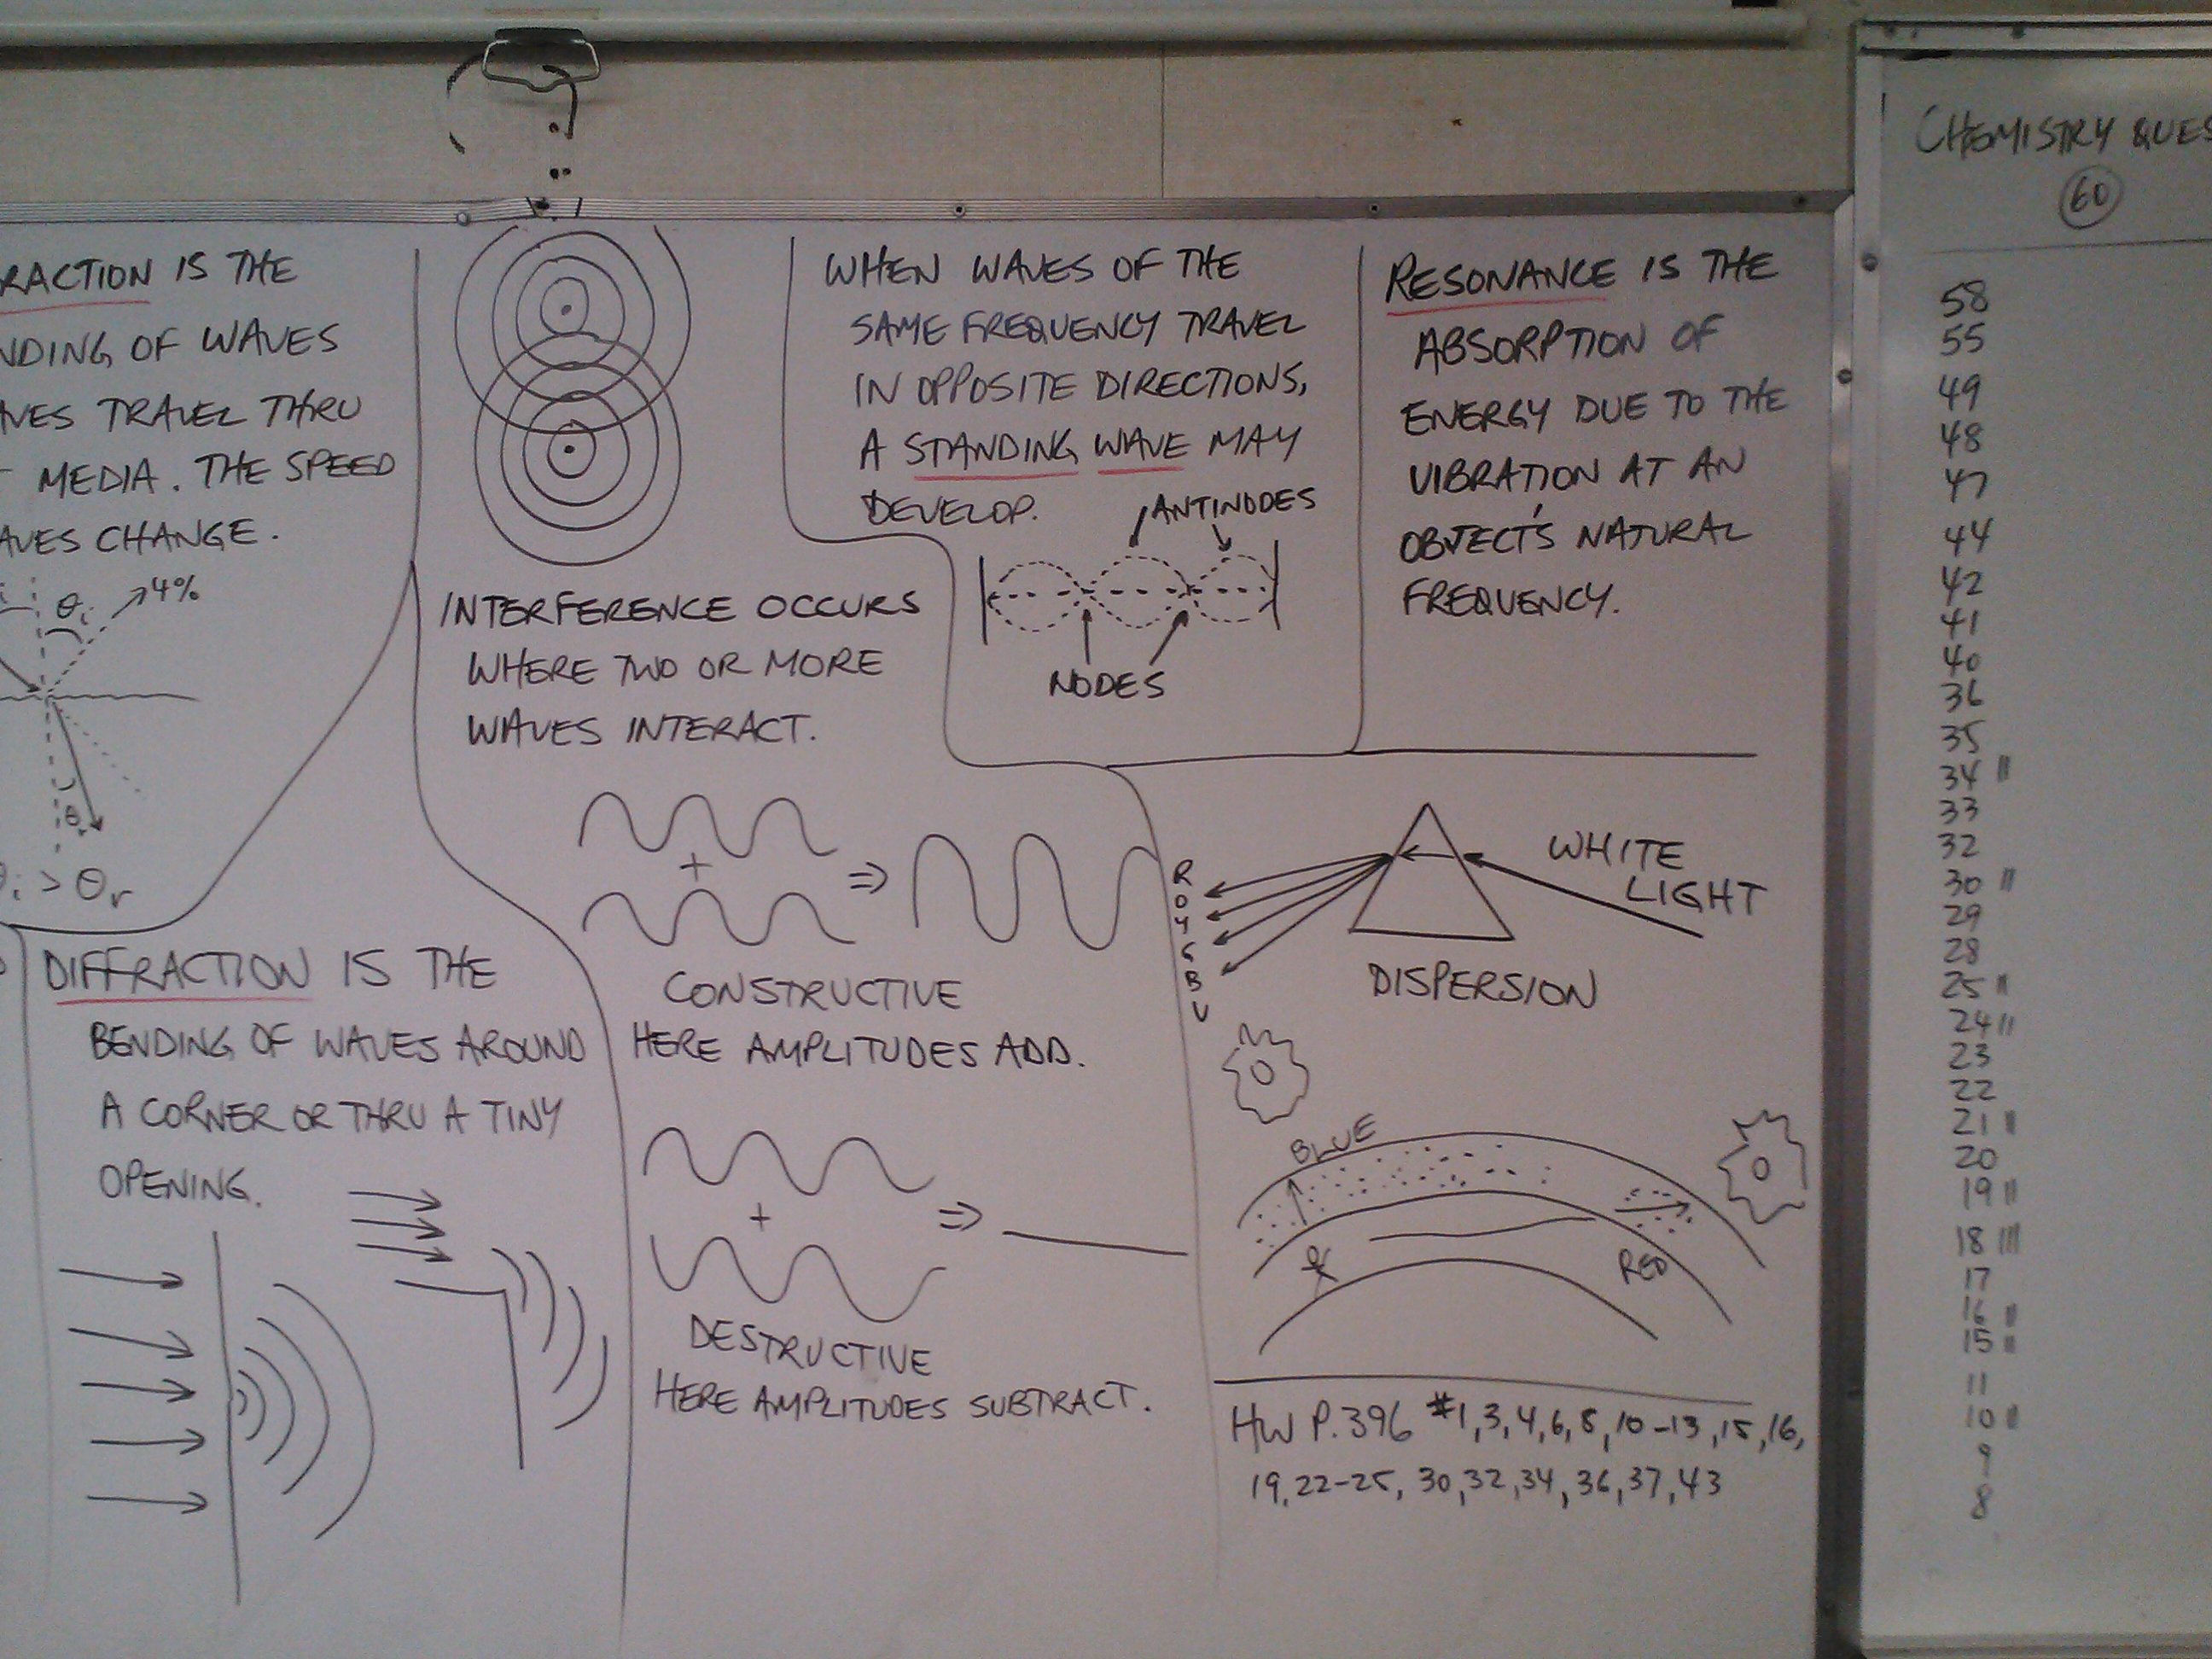 RACTION IS THE
NDING OF WAVES
AVES TRAVEL THRU
MEDIA. THE SPEED
AVES CHANGE.
θi
4%
θr
θi > θr
DIFFRACTION IS THE
BENDING OF WAVES AROUND
A CORNER OR THRU A TINY
OPENING.
INTERFERENCE OCCURS
WHERE TWO OR MORE
WAVES INTERACT.
+
⇒
CONSTRUCTIVE
HERE AMPLITUDES ADD.
+
⇒
DESTRUCTIVE
HERE AMPLITUDES SUBTRACT.
WHEN WAVES OF THE
SAME FREQUENCY TRAVEL
IN OPPOSITE DIRECTIONS,
A STANDING WAVE MAY
DEVELOP.
ANTINODES
NODES
RESONANCE IS THE
ABSORPTION OF
ENERGY DUE TO THE
VIBRATION AT AN
OBJECT'S NATURAL
FREQUENCY.
WHITE
LIGHT
R
O
Y
G
B
V
DISPERSION
BLUE
RED
HW P.396 #1,3,4,6,8,10-13,15,16,
19,22-25,30,32,34,36,37,43
CHEMISTRY QUES
60
58
55
49
48
47
44
42
41
40
36
35
34 ||
33
32
30 ||
29
28
25 ||
24 ||
23
22
21 ||
20
19 ||
18 |||
17
16 ||
15 ||
11
10 ||
9
8